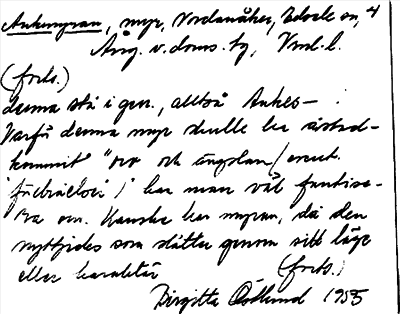 Ankemyran, myr, Nordanåker, Edsele sn, 4
Ång. v. doms. bg, Vnrl. l.
(forts.)
denna stå i gen., alltså Ankes–
Varför denna myr skulle ha åstad-
kommit "oro och ängslan / event.
förbielsei / kan man väl fantise-
ra om. Kanske har myran, då den
nyttjades som slåtter genom sitt läge
eller karaktär (forts.)
Birgitta Östlund 1955